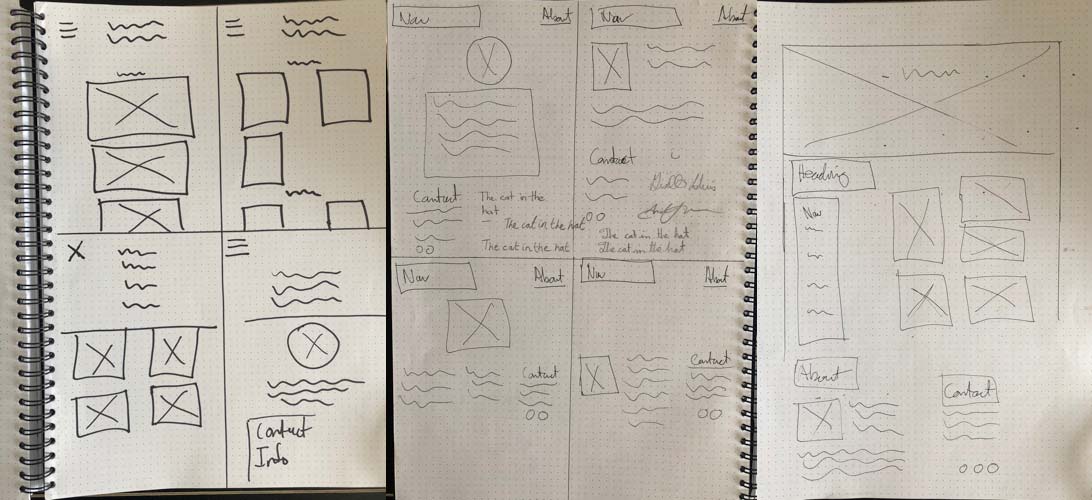 Contact
Info
Nav
About
Contact
The cat in the
hat
The cat in the hat
The cat in the hat
Nav
About
Contact
The cat in the hat
The cat in the hat
Nav
About
Contact
Nav
About
Contact
Heading
Nav
About
Contact